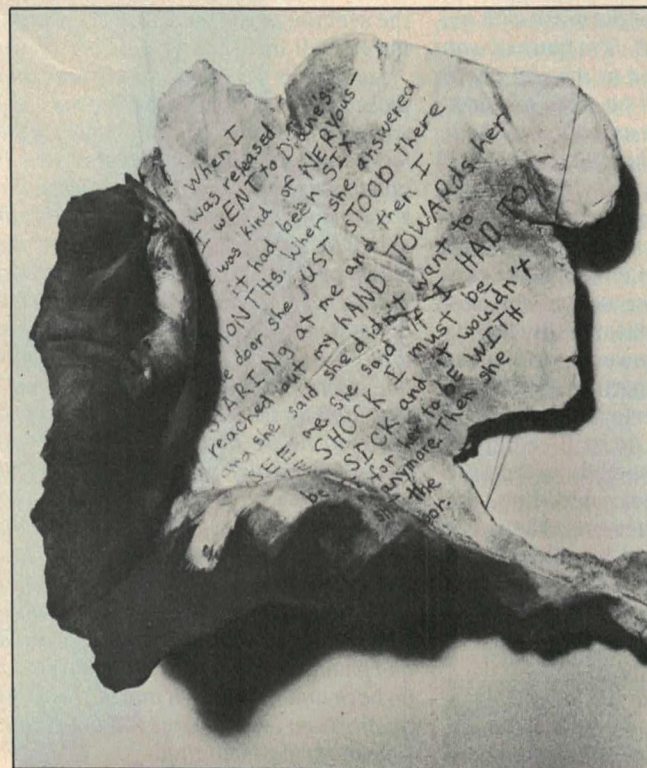 When I
was released
I WENT to Diane's.
I was kind of NERVous-
it had been SIX
MONTHs. When she answered
door she JUST STOOD there
STARING at me and then I
reached out my HAND TOWARDs her
and she said she didn't want to
SEE me she said if I HAD TO
SHOCK I must be
SICK and it wouldn't
for her to BE WITH
anymore. Then she
the